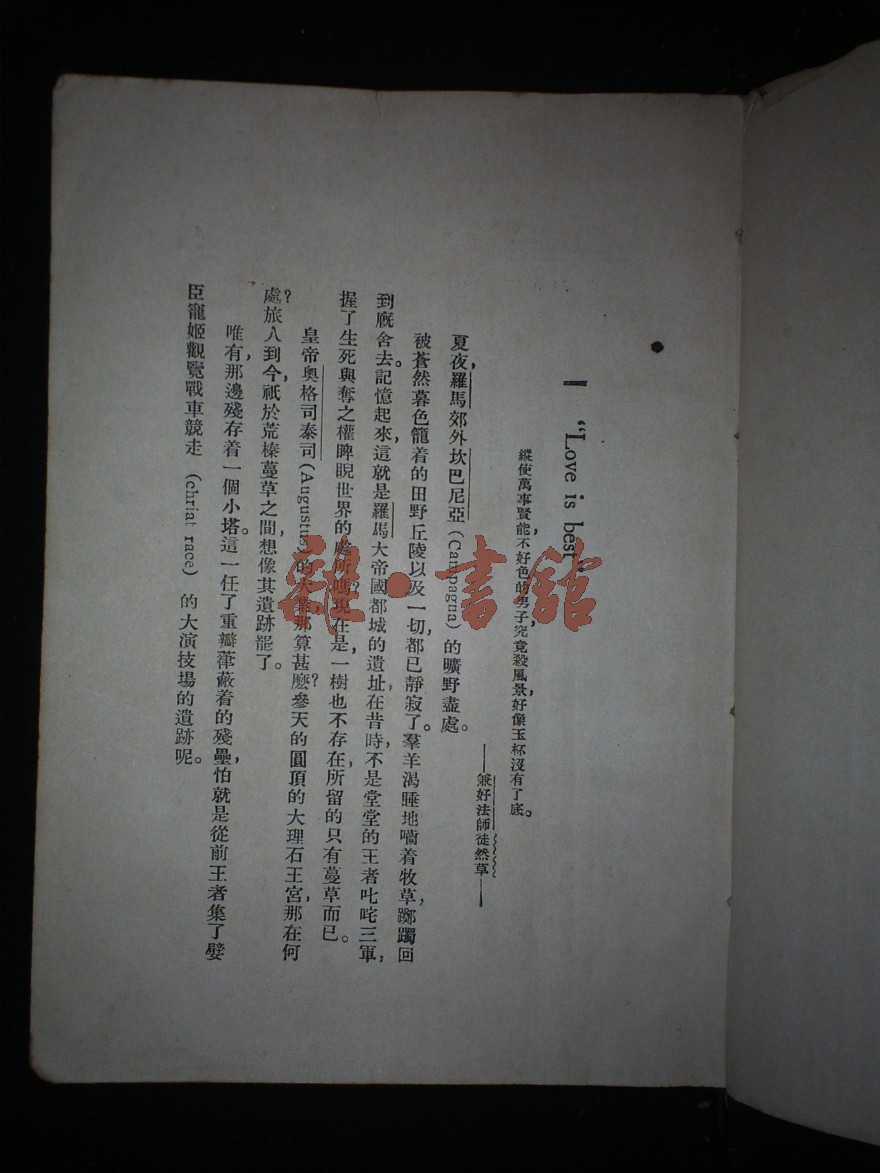 一 “Love is best”
縱使萬事賢能,不好色的男子,究竟殺風景,好像玉杯沒有了底。
——兼好法師徒然草——
夏夜,羅馬郊外坎巴尼亞 (Campagna) 的曠野盡處。
被蒼然暮色籠着的田野丘陵以及一切,都已靜寂了。羣羊渴睡地嚙着牧草,躑躅回
到廐舍去。記憶起來,這就是羅馬大帝國都城的遺址,在昔時,不是堂堂的王者叱咤三軍,
握了生死與奪之權睥睨世界的處所嗎?現在是,一樹也不存在,所留的只有蔓草而已。
皇帝奧格司泰司 (Augustus) 的大業,那算甚麽?參天的圓頂的大理石王宮,那在何
處?旅人到今,祇於荒榛蔓草之間,想像其遺跡罷了。
唯有,那邊殘存着一個小塔。這一任了重瓣葎蔽着的殘壘,怕就是從前王者集了嬖
臣寵姬觀覽戰車競走 (chriat race) 的大演技場的遺跡呢。
雜·書館